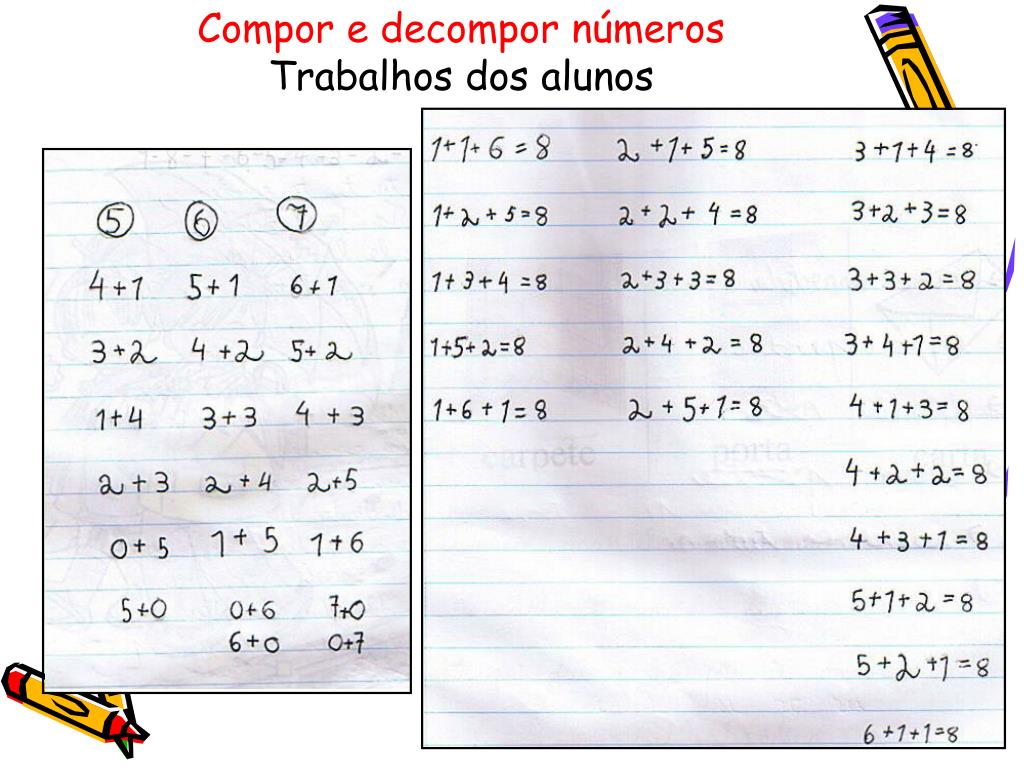 Compor e decompor números
Trabalhos dos alunos
5 6 7
4+1 5+1 6+1
3+2 4+2 5+2
1+4 3+3 4+3
2+3 2+4 2+5
0+5 1+5 1+6
5+0 0+6 7+0
6+0 0+7
1+1+6=8 2+1+5=8 3+1+4=8
1+2+5=8 2+2+4=8 3+2+3=8
1+3+4=8 2+3+3=8 3+3+2=8
1+5+2=8 2+4+2=8 3+4+1=8
1+6+1=8 2+5+1=8 4+1+3=8
4+2+2=8
4+3+1=8
5+1+2=8
5+2+1=8
6+1+1=8
carpete porta carta